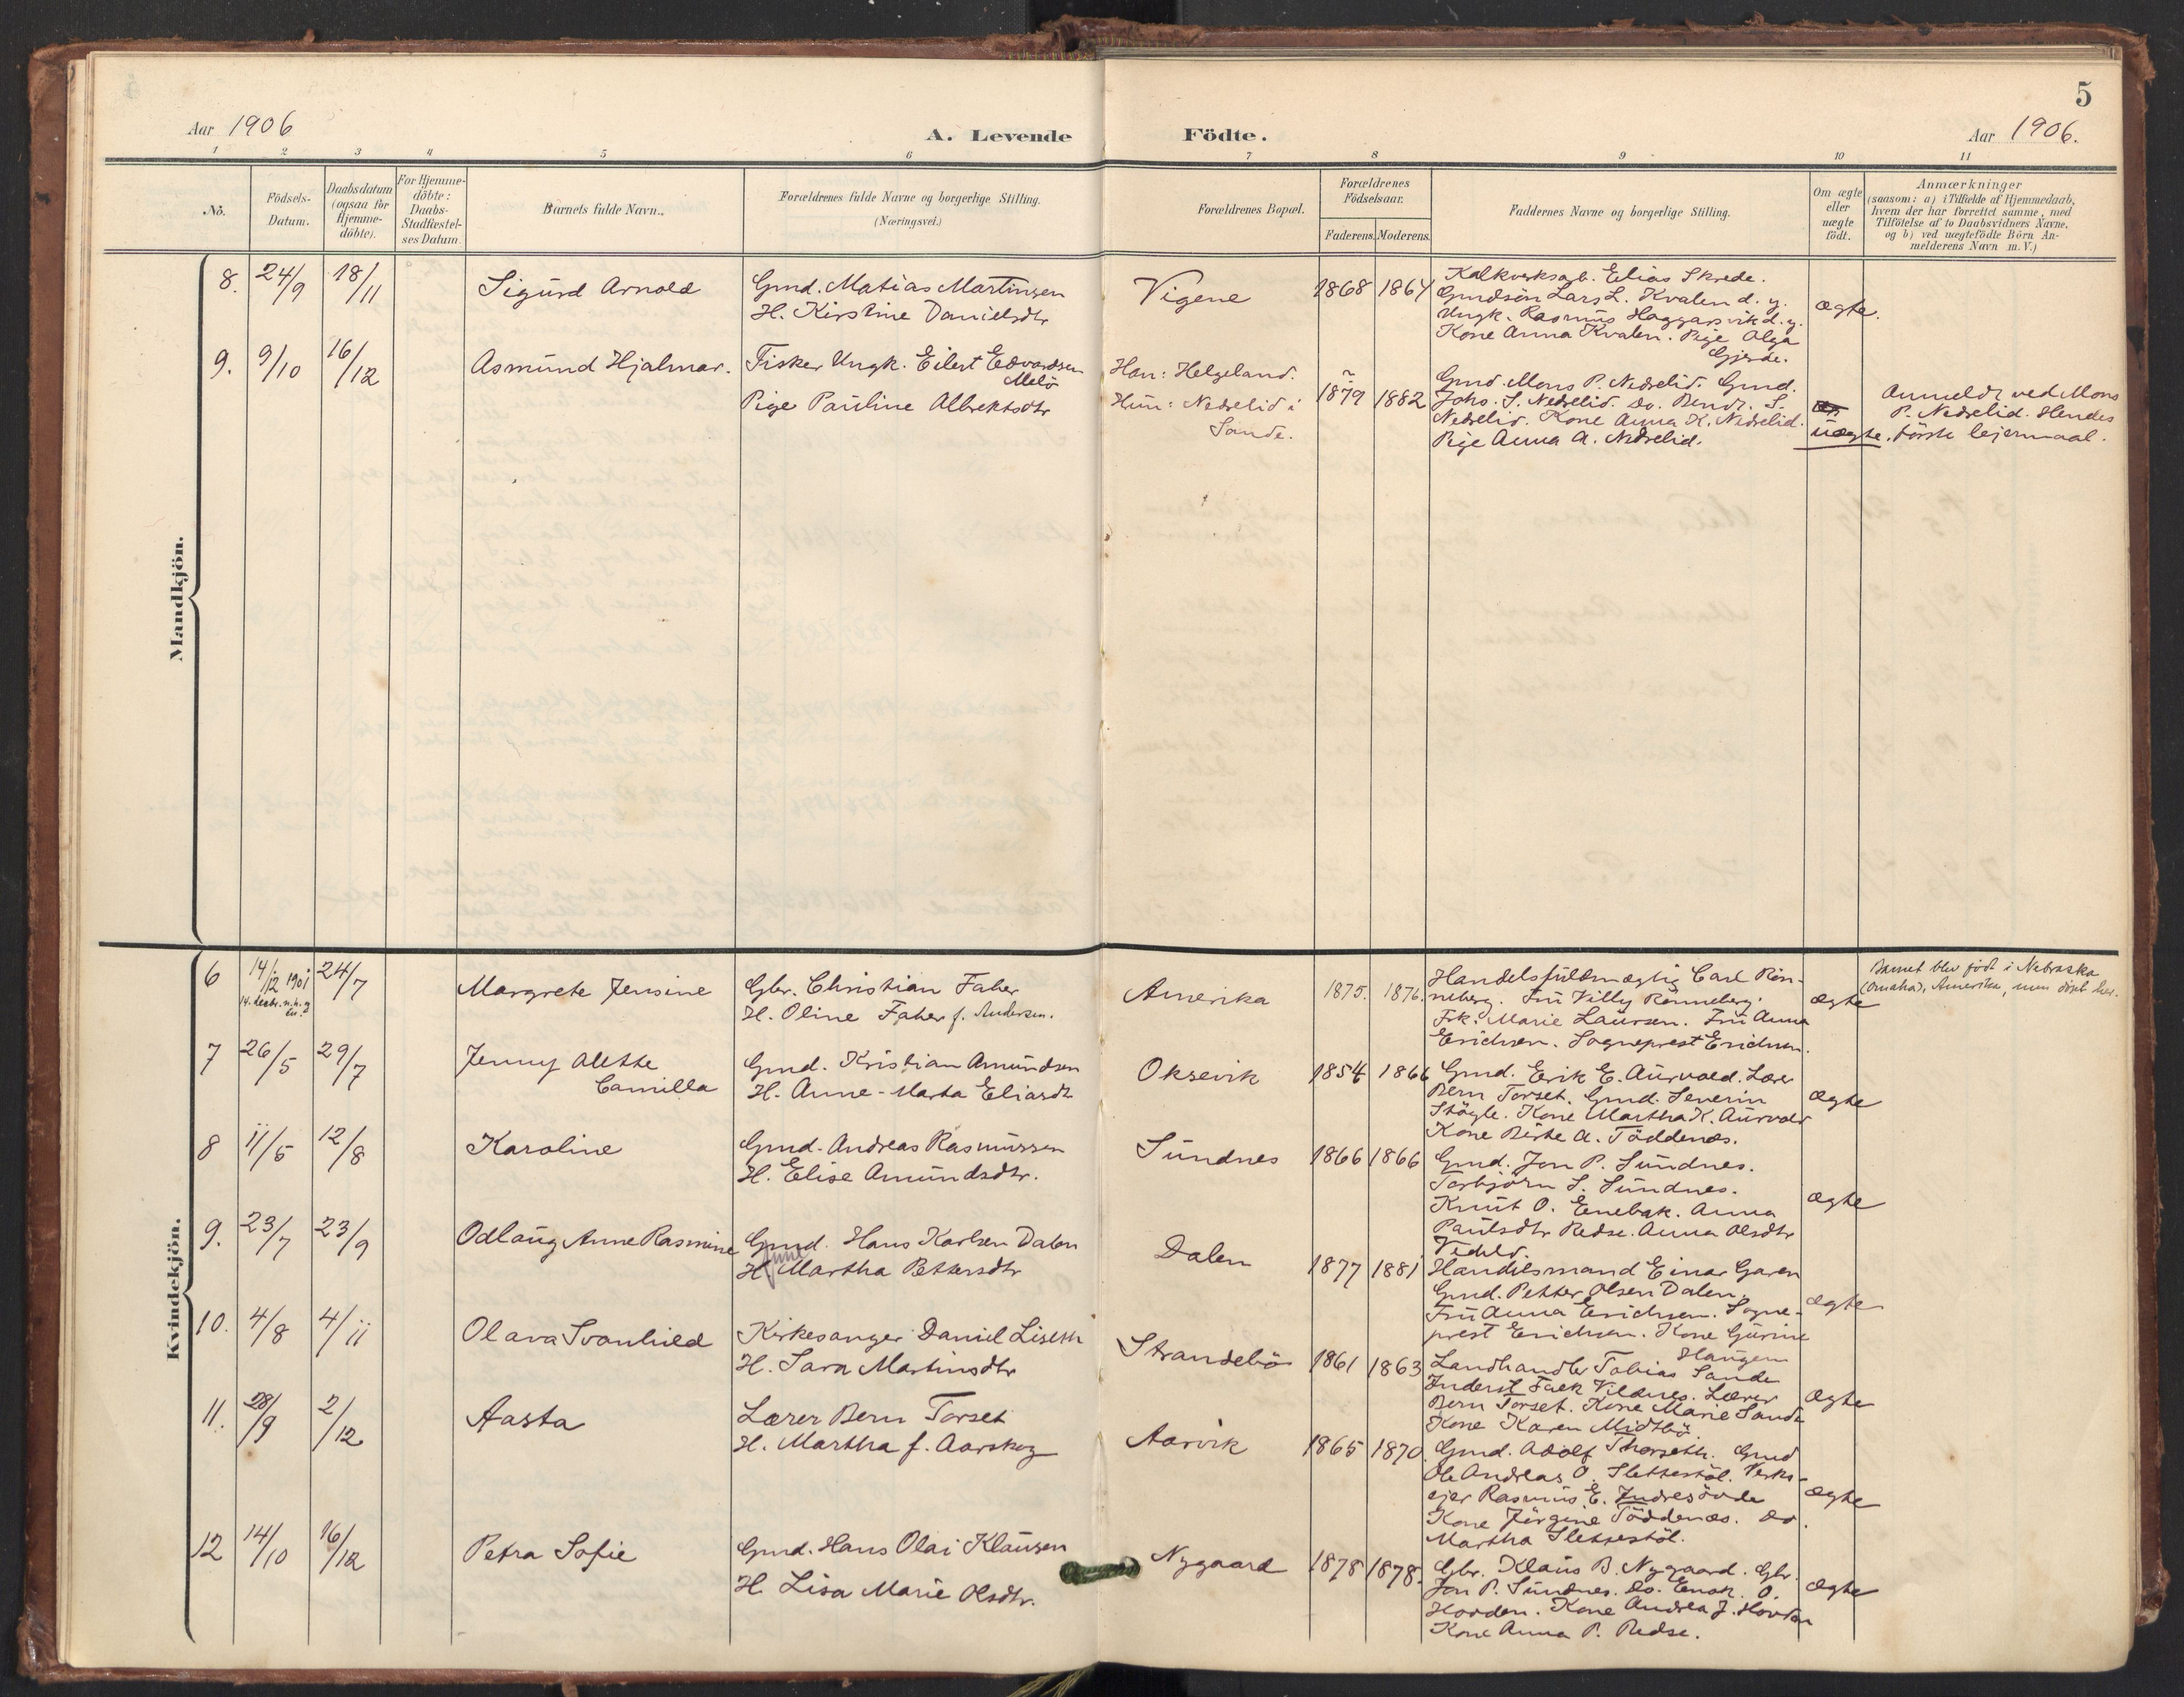 5
Aar 1906
A. Levende Födte.
Aar 1906.
1 2 3 4 5 6 7 8 9 10 11
No.
Födsels-
Datum.
Daabsdatum
(ogsaa for
Hjemme-
döbte).
For Hjemme-
döbte:
Daabs-
Stadfæstel-
ses Datum.
Barnets fulde Navn.
Forældrenes fulde Navne og borgerlige Stilling.
(Næringsvei.)
Forældrenes Bopæl.
Forældrenes
Födselsaar.
Faderens. Moderens.
Faddernes Navne og borgerlige Stilling.
Om ægte
eller
uægte
födt.
Anmærkninger
(saasom: a) i Tilfælde af Hjemmedaab,
hvem der har forrettet samme, med
Tilföielse af to Daabsvidners Navne,
og b) ved uægtefödte Börn An-
melderens Navn m. V.)
Mandkjön.
8. 24/9 18/11 Sigurd Arnold
Gmd. Matias Martinsen
H. Kirstine Danielsdtr
Vigene
1868 1864
Kalkverksarb. Elias Skrede.
Gmdsön Lars L. Kvalen d. y.
Ungk. Rasmus Haggarsvik d. y.
Kone Anna Kvalen. Pige Olga
Gjerde.
ægte.
9. 9/10 16/12 Asmund Hjalmar.
Fisker Ungk. Eilert Edvardsen
Melö
Pige Pauline Albrektsdtr
Han: Helgeland.
Hun: Nedrelid i
Sande.
1879 1882
Gmd. Mons P. Nedrelid. Gmd.
Johs. S. Nedrelid. Do. Bendr. S.
Nedrelid. Kone Anna K. Nedrelid.
Pige Anna A. Nedrelid.
uægte.
Anmeldt ved Mons
P. Nedrelid. Hendes
förste lejermaal.
Kvindekjön.
6 14/12 1901 24/7 Margrete Jensine
Gbr. Christian Faher
H. Oline Faher f. Andersen.
Amerika
1875. 1876.
Handelsfuldmægtig Carl Rön-
neberg. Fru Villy Rönneberg.
Frk. Marie Laursen. Fru Anna
Erichsen. Sogneprest Erichsen.
ægte
Barnet blev födt i Nebraska
(Omaha), Amerika, men döbt her.
7 26/5 29/7 Jenny Alette
Camilla
Gmd. Kristian Amundsen
H. Anne-Marta Eliasdt.
Oksevik
1854 1866
Gmd. Erik E. Aurvold. Lærer
Bern Torset. Gmd. Severin
Stögle. Kone Martha K. Aurvold
Kone Berte A. Töddenæs.
ægte
8 11/5 12/8 Karoline
Gmd. Andreas Rasmussen
H. Elise Amundsdtr.
Sundnes
1866 1866
Gmd. Jon P. Sundnes.
Torbjörn S. Sundnes.
Knut O. Enebak. Anna
Paulsdtr Redse. Anna Olsdtr
Vedeld.
ægte
9. 23/7 23/9 Odlaug Anne Rasmine
Gmd. Hans Karlsen Dalen
H. Martha Pettersdtr
Dalen
1877 1881
Handelsmand Einar Garen
Gmd. Petter Olsen Dalen.
Fru Anna Erichsen. Sogne-
prest Erichsen. Kone Gurine
Haugen
ægte
10. 4/8 4/11 Olava Svanhild
Kirkesanger Daniel Liseth
H. Sara Martinsdtr
Strandebö
1861 1863
Landhandler Tobias Sande
Inderst Falk Vildnes. Lærer
Bern Torset. Kone Marie Sande
Kone Karen Midtbö.
ægte
11. 28/9 2/12 Aasta
Lærer Bern Torset
H. Martha f. Aarskog
Aarvik
1865 1870
Gmd. Adolf Thorseth. Gmd
Ole Andreas O. Slettestöl. Verks-
ejer Rasmus E. Indresövde
Kone Jörgine Töddenæs. Do.
Martha Slettestöl.
ægte
12 14/10 16/12 Petra Sofie
Gmd. Hans Olai Klausen
H. Lisa Marie Olsdtr.
Nygaard
1878 1878.
Gbr. Klaus B. Nygaard. Gbr.
Jon P. Sundnes. Do. Enok O.
Hovden. Kone Andrea J. Hovden
Kone Anna P. Redse.
ægte